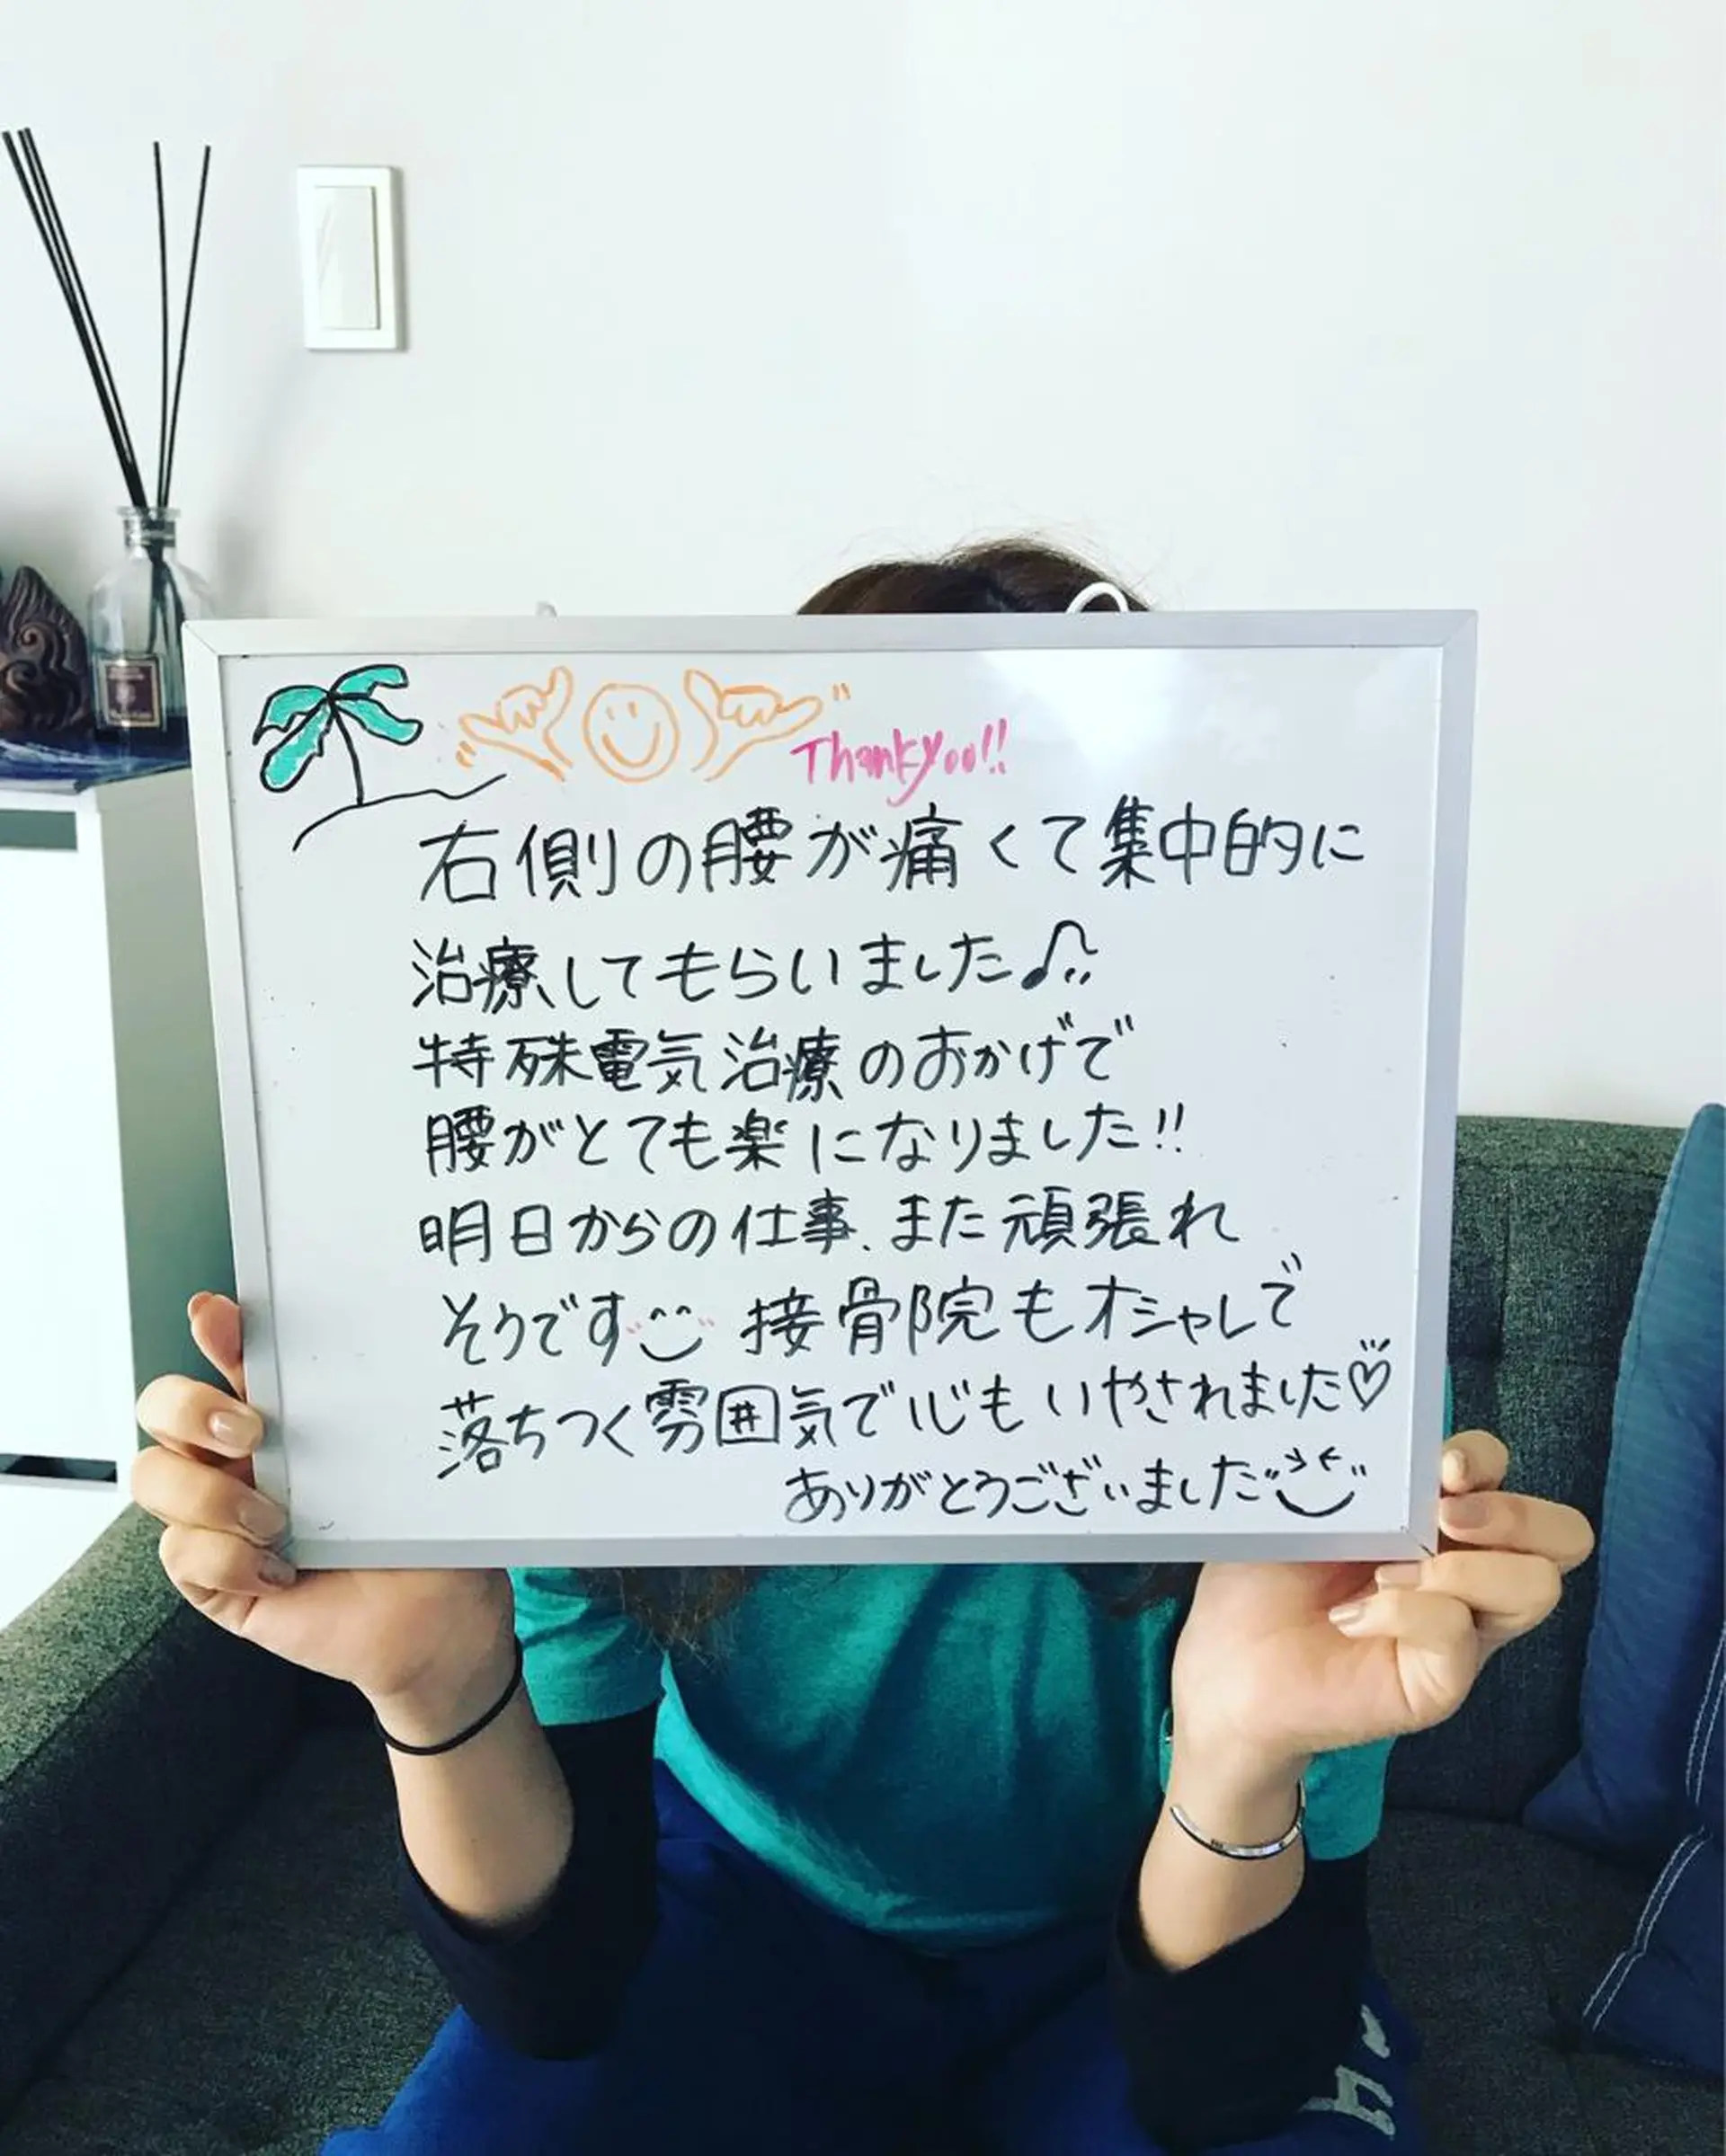 Thankyoo!!
右側の腰が痛くて集中的に
治療してもらいました♪
特殊電気治療のおかげで
腰がとても楽になりました!!
明日からの仕事、また頑張れ
そうです 接骨院もオシャレで
落ちつく雰囲気で心もいやされました♡
ありがとうございました